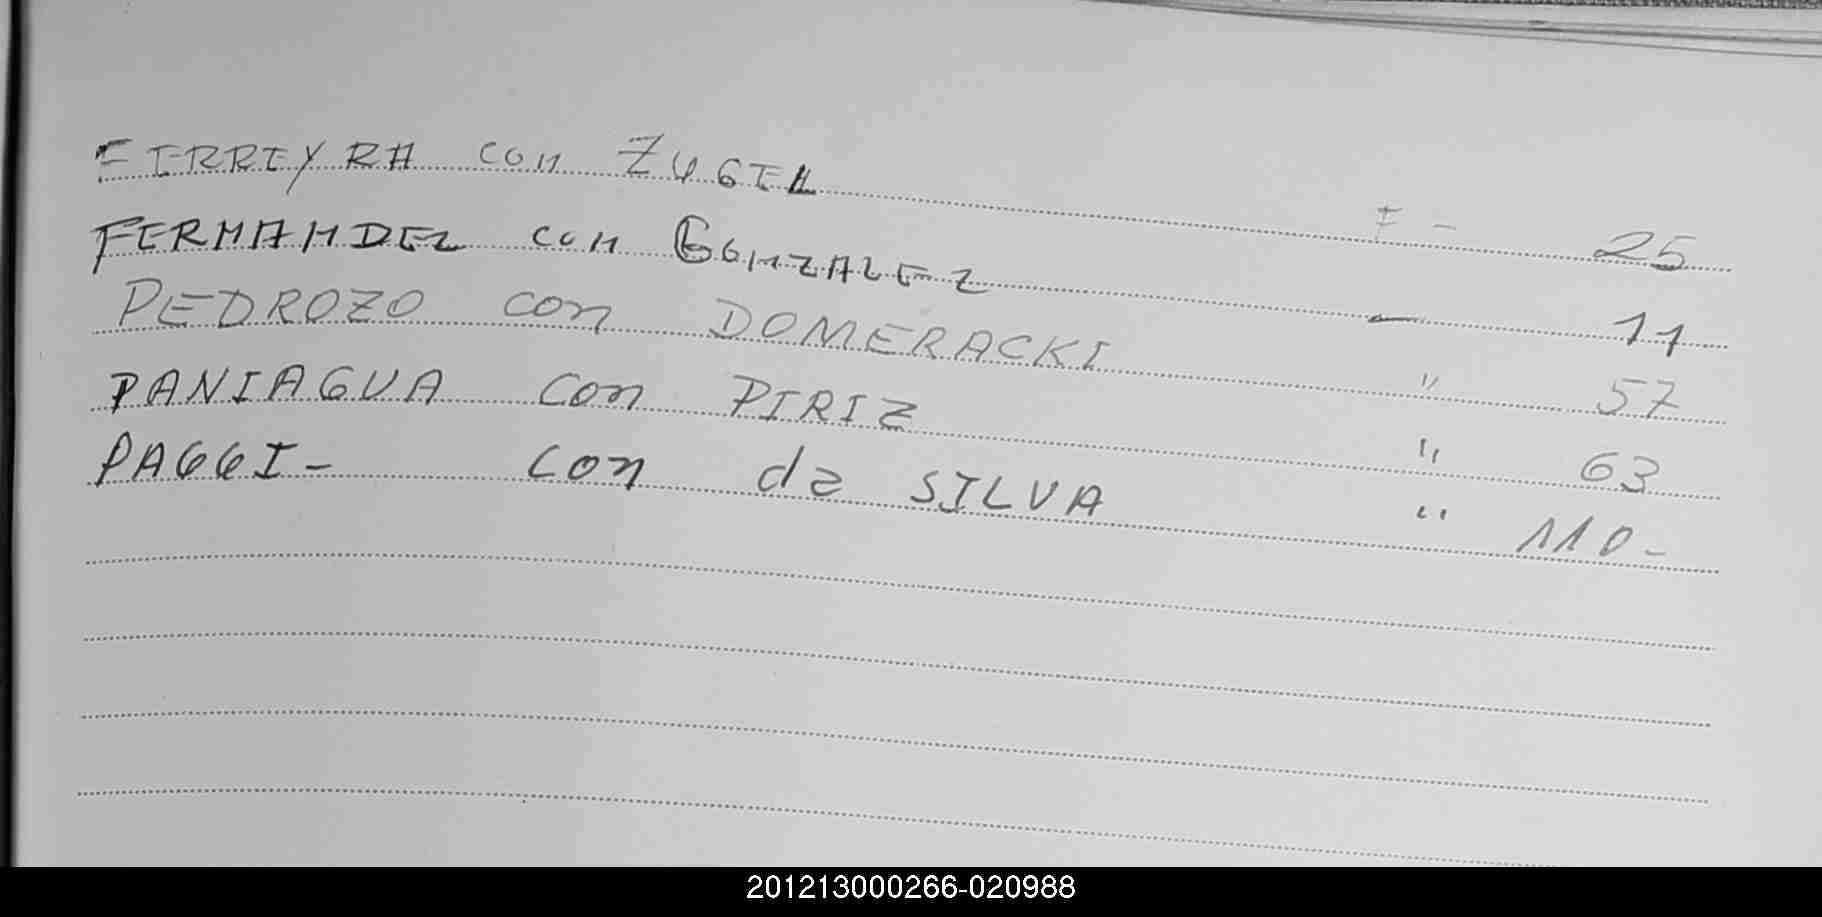 FERREYRA con ZUGEL F - 25
FERNANDEZ con GONZALEZ — 11
PEDROZO con DOMERACKI " 57
PANIAGUA con PIRIZ " 63
PAGGI- con da SILVA " 110-
201213000266-020988